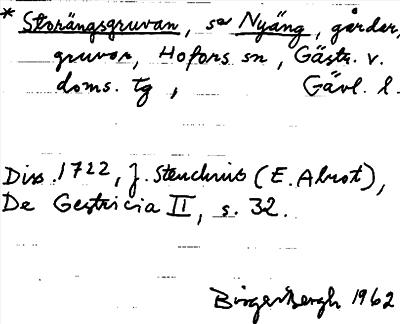 * Storängsgruvan, se Nyäng, gårdar,
gruvor, Hofors sn, Gästr. v.
doms. tg, Gävl. l.
Diss. 1722, J. Stenchius (E. Alroot),
De Gestricia II, s. 32.
Birger Bergh 1962